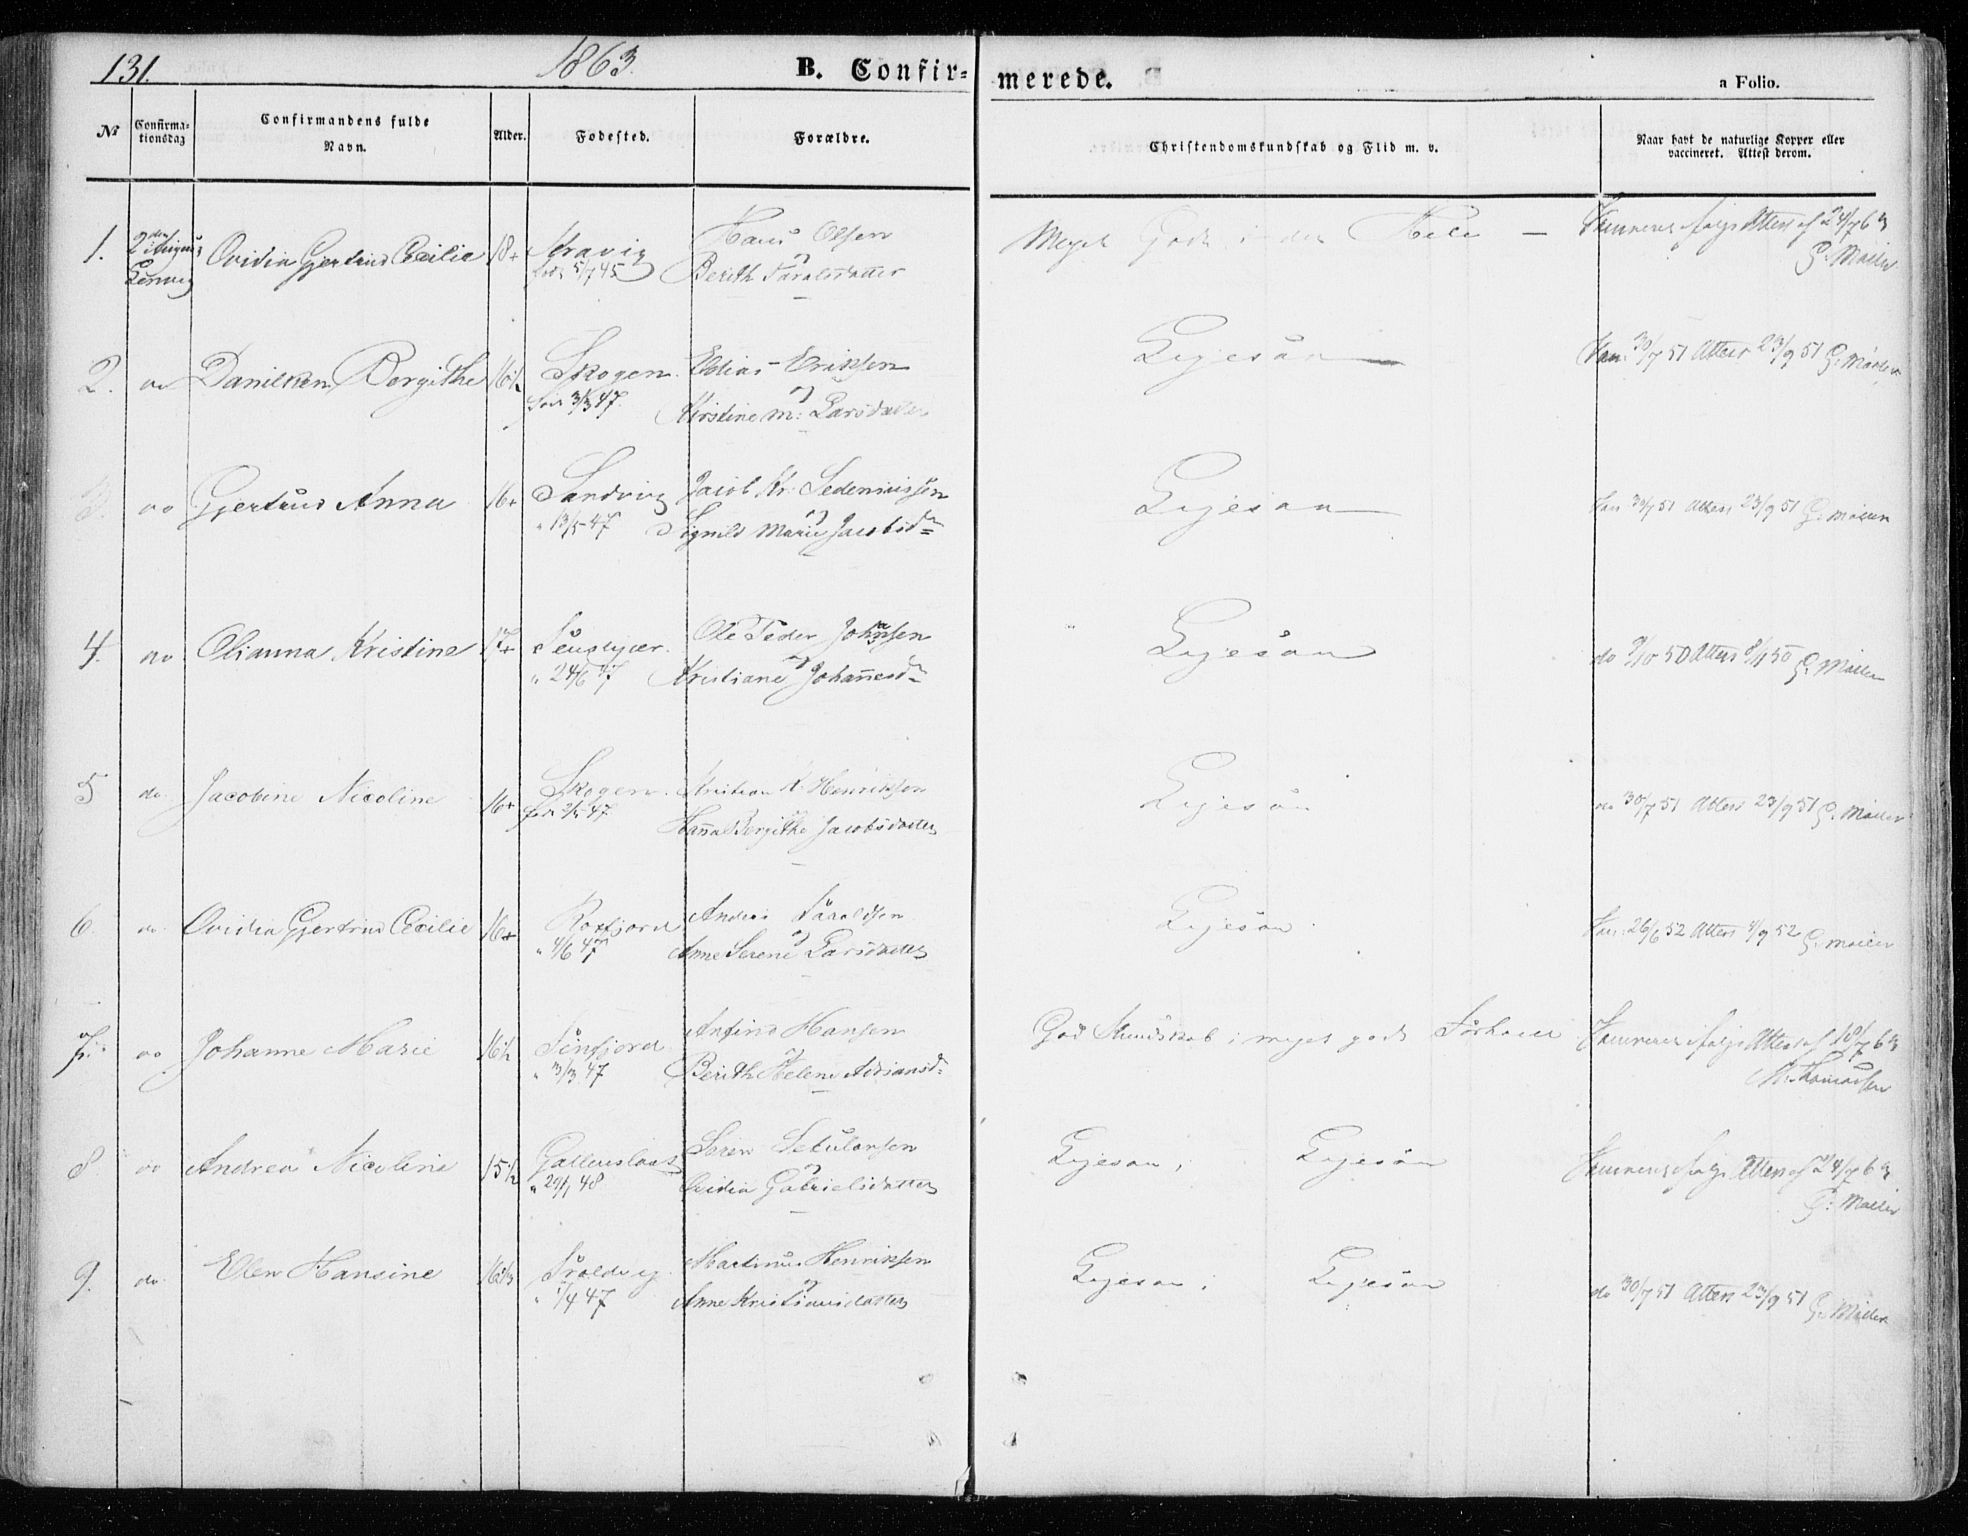 131.
1863.
B. Confir-
merede.
a Folio.
No
Confirma-
tionsdag
Confirmandens fulde
Navn.
Alder.
Fødested.
Forældre.
Christendomskundskab og Flid m. v.
Naar havt de naturlige Kopper eller
vaccineret. Attest derom.
1.
2den
Ovidia Gjertrud Cecilie
18+
Kravig
5/7 45
Hans Olsen
og
Berith
Meget Godt i det Hele —
Attest af 24/7 63
G. Møller
2.
do
Daniken Borgithe
16½
Skogen
3/3 47.
Elias Eriksen
og
Kirstine M: Larsdatter
Ligesaa
Vac 30/7 51 Attest 23/9 51 G. Møller
3.
do
Gjertrud Anna
16+
Sandvig
" 13/5 47
Jacob Kr:
og
Marie Jacobsd=
Ligesaa
Vac 30/7 51 Attest 23/9 51 G. Møller
4.
do
Olianna Kristine
17+
" 24/6 47
Ole Peder Johnsen
og
Kristiane Johannesd=
Ligesaa
do 9/10 50 Attest 8/11 50 G. Møller
5
do.
Jacobine Nicoline
16+
Skogen
2/5 47
Kristian K. Henriksen
Hanna Bergithe Jacobsdatter
Ligesaa
do 30/7 51 Attest 23/9 51 G. Møller
6.
do.
Ovidia Gjertrud Cecilie
16+
Roxfjord
" 4/6 47
Anders
og
Anne Serene Larsdatter
Ligesaa
Vac: 26/6 52 Attest 4/9 52 G. Møller
7.
do
Johanne Marie
16½
" 3/3 47
Anfind Hansen
og
Berith Helene Adriansd=
God Kundskab i meget godt Forhold
Attest af 18/7 63
M. Thomassen
8.
do
Andrea Nicoline
15½
" 29/1 48
Søren
og
Ovidia Gabrielsdatter
Ligesaa i
Ligesaa
Attest af 24/7 63
G. Møller
9.
do.
Elen Hansine
16⅓
Troldvig
" 1/4 47
Martinus Henriksen
og
Anne Kristiansdatter
Ligesaa i
Ligesaa
do 30/7 51 Attest 23/9 51 G. Møller